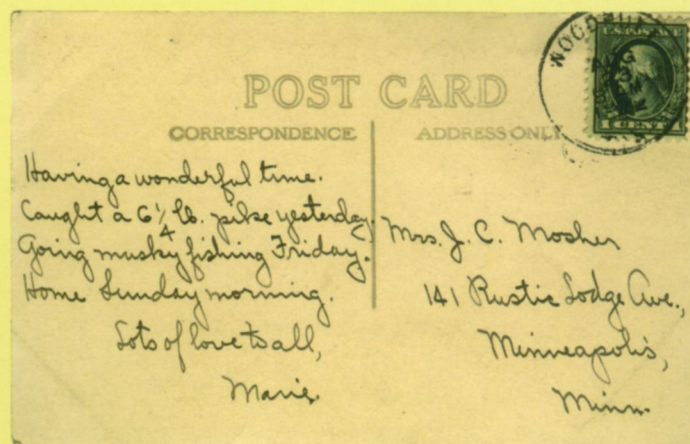 POST CARD
CORRESPONDENCE
ADDRESS ONLY
Having a wonderful time.
Caught a 6 1/4 lb. pike yesterday.
Going musky fishing Friday.
Home Sunday morning.
Lots of love to all,
Marie.
Mrs. J. C. Mosher
141 Rustic Lodge Ave.,
Minneapolis,
Minn.
WOODRUFF
AUG
U.S. POSTAGE
1 CENT 1